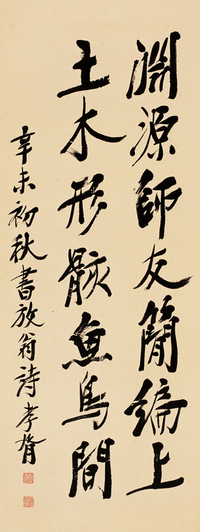 淵源師友簡編上
土木形骸魚鳥間
辛未初秋書放翁詩孝胥